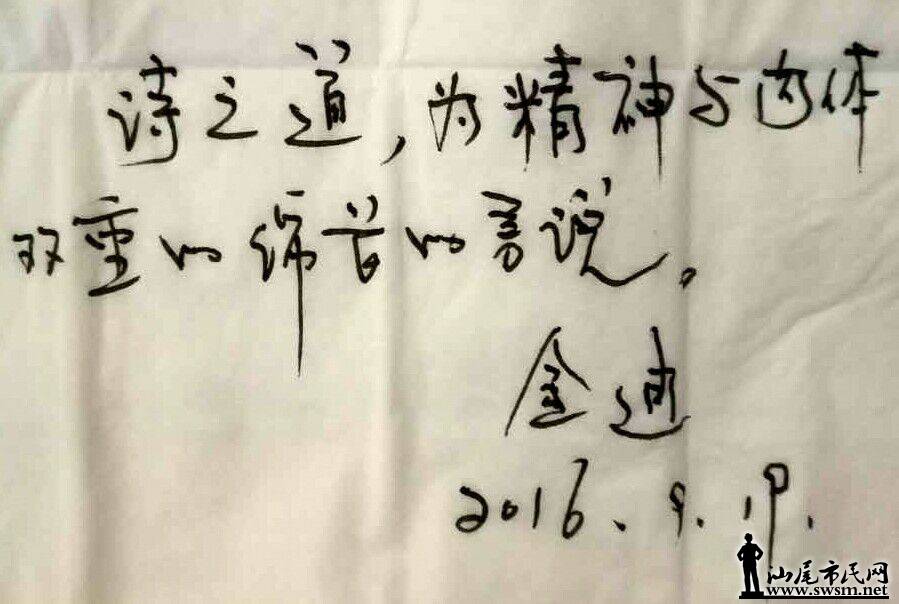 诗之道,为精神与肉体
双重的绵长的言说。
金迪
2016、9.19.
汕尾市民网
www.swsm.net